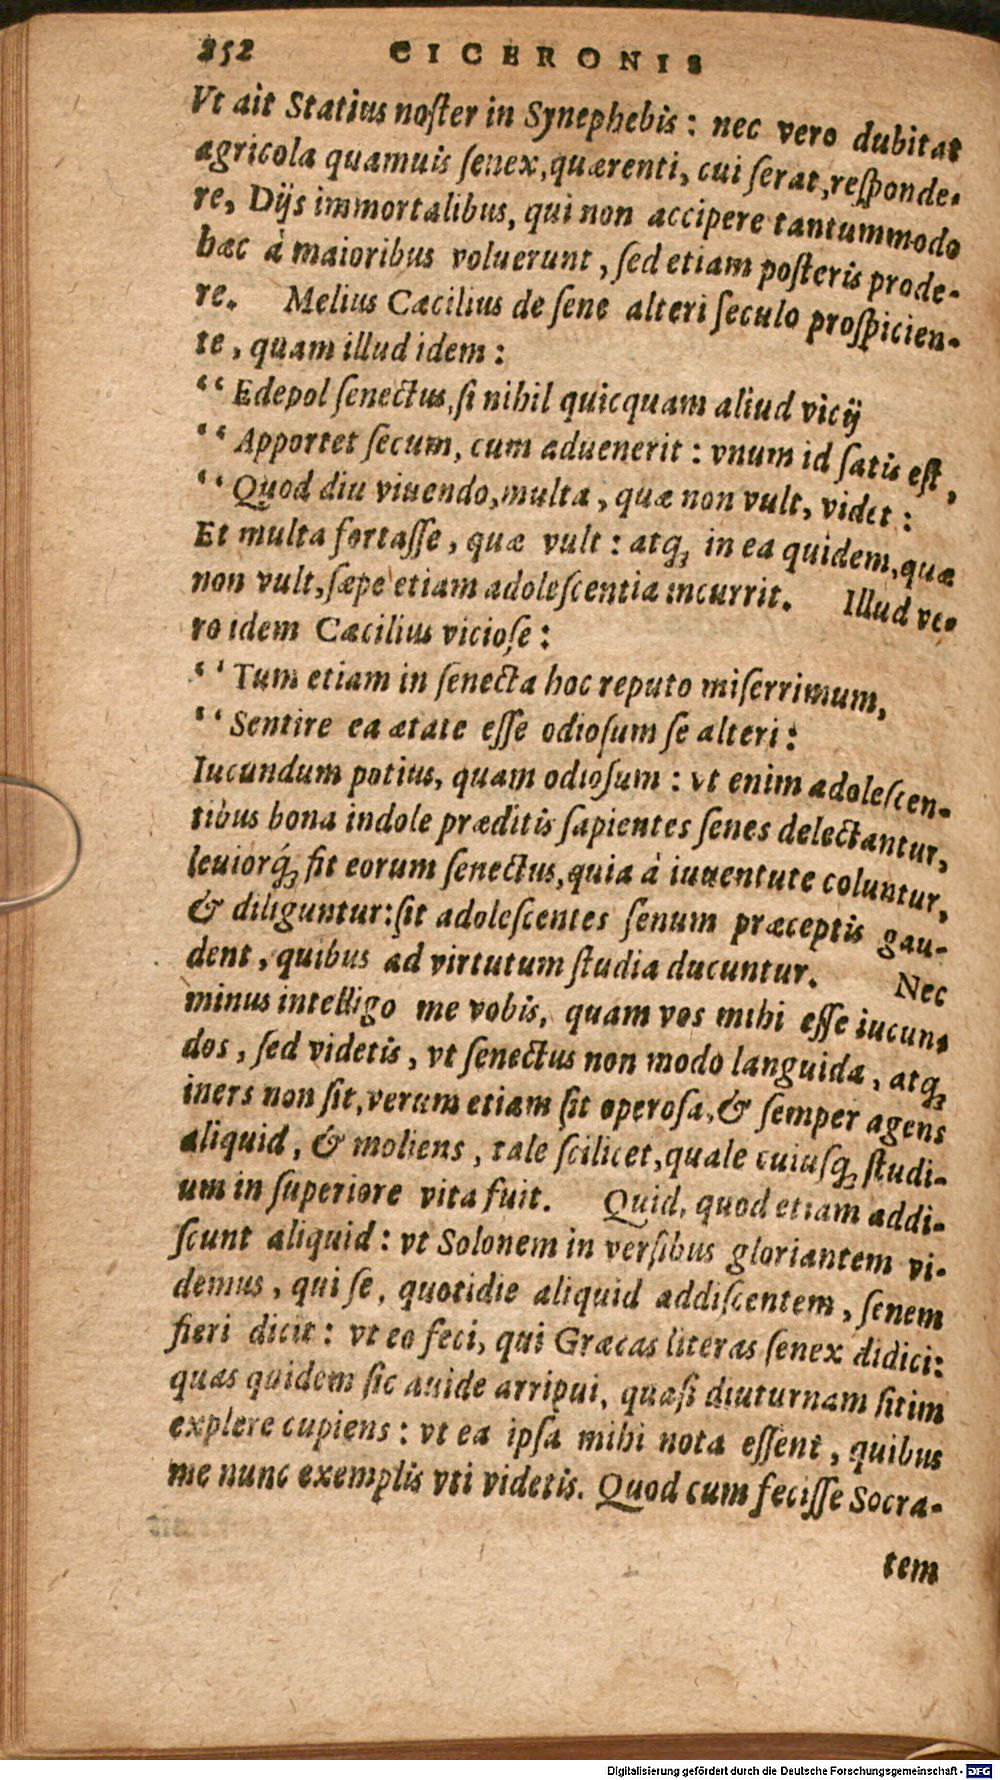 252 CICERONIS
Vt ait Statius noſter in Synephebis: nec vero dubitat
agricola quamuis ſenex, quærenti, cui ſerat, reſponde-
re, Dijs immortalibus, qui non accipere tantummodo
hæc à maioribus voluerunt, ſed etiam poſteris prode-
re. Melius Cæcilius de ſene alteri ſeculo proſpicien-
te, quam illud idem:
“ Edepol ſenectus, ſi nihil quicquam aliud vicij
“ Apportet ſecum, cum aduenerit: vnum id ſatis eſt,
“ Quod diu viuendo, multa, quæ non vult, videt:
Et multa fortaſſe, quæ vult: atq́; in ea quidem, quæ
non vult, ſæpe etiam adoleſcentia incurrit. Illud ve-
ro idem Cæcilius vicioſe:
“ Tum etiam in ſenecta hoc reputo miſerrimum,
“ Sentire ea ætate eſſe odioſum ſe alteri:
Iucundum potius, quam odioſum: vt enim adoleſcen-
tibus bona indole præditis ſapientes ſenes delectantur,
leuiorq́; fit eorum ſenectus, quia à iuuentute coluntur,
& diliguntur: ſit adoleſcentes ſenum præceptis gau-
dent, quibus ad virtutum ſtudia ducuntur. Nec
minus intelligo me vobis, quam vos mihi eſſe iucun-
dos, ſed videtis, vt ſenectus non modo languida, atq;
iners non ſit, verum etiam ſit operoſa, & ſemper agens
aliquid, & moliens, tale ſcilicet, quale cuiuſq; ſtudi-
um in ſuperiore vita fuit. Quid, quod etiam addi-
ſcunt aliquid: vt Solonem in verſibus gloriantem vi-
demus, qui ſe, quotidie aliquid addiſcentem, ſenem
fieri dicit: vt eo feci, qui Græcas literas ſenex didici:
quas quidem ſic auide arripui, quaſi diuturnam ſitim
explere cupiens: vt ea ipſa mihi nota eſſent, quibus
me nunc exemplis vti videtis. Quod cum feciſſe Socra-
tem
Digitalisierung gefördert durch die Deutsche Forschungsgemeinschaft - DFG